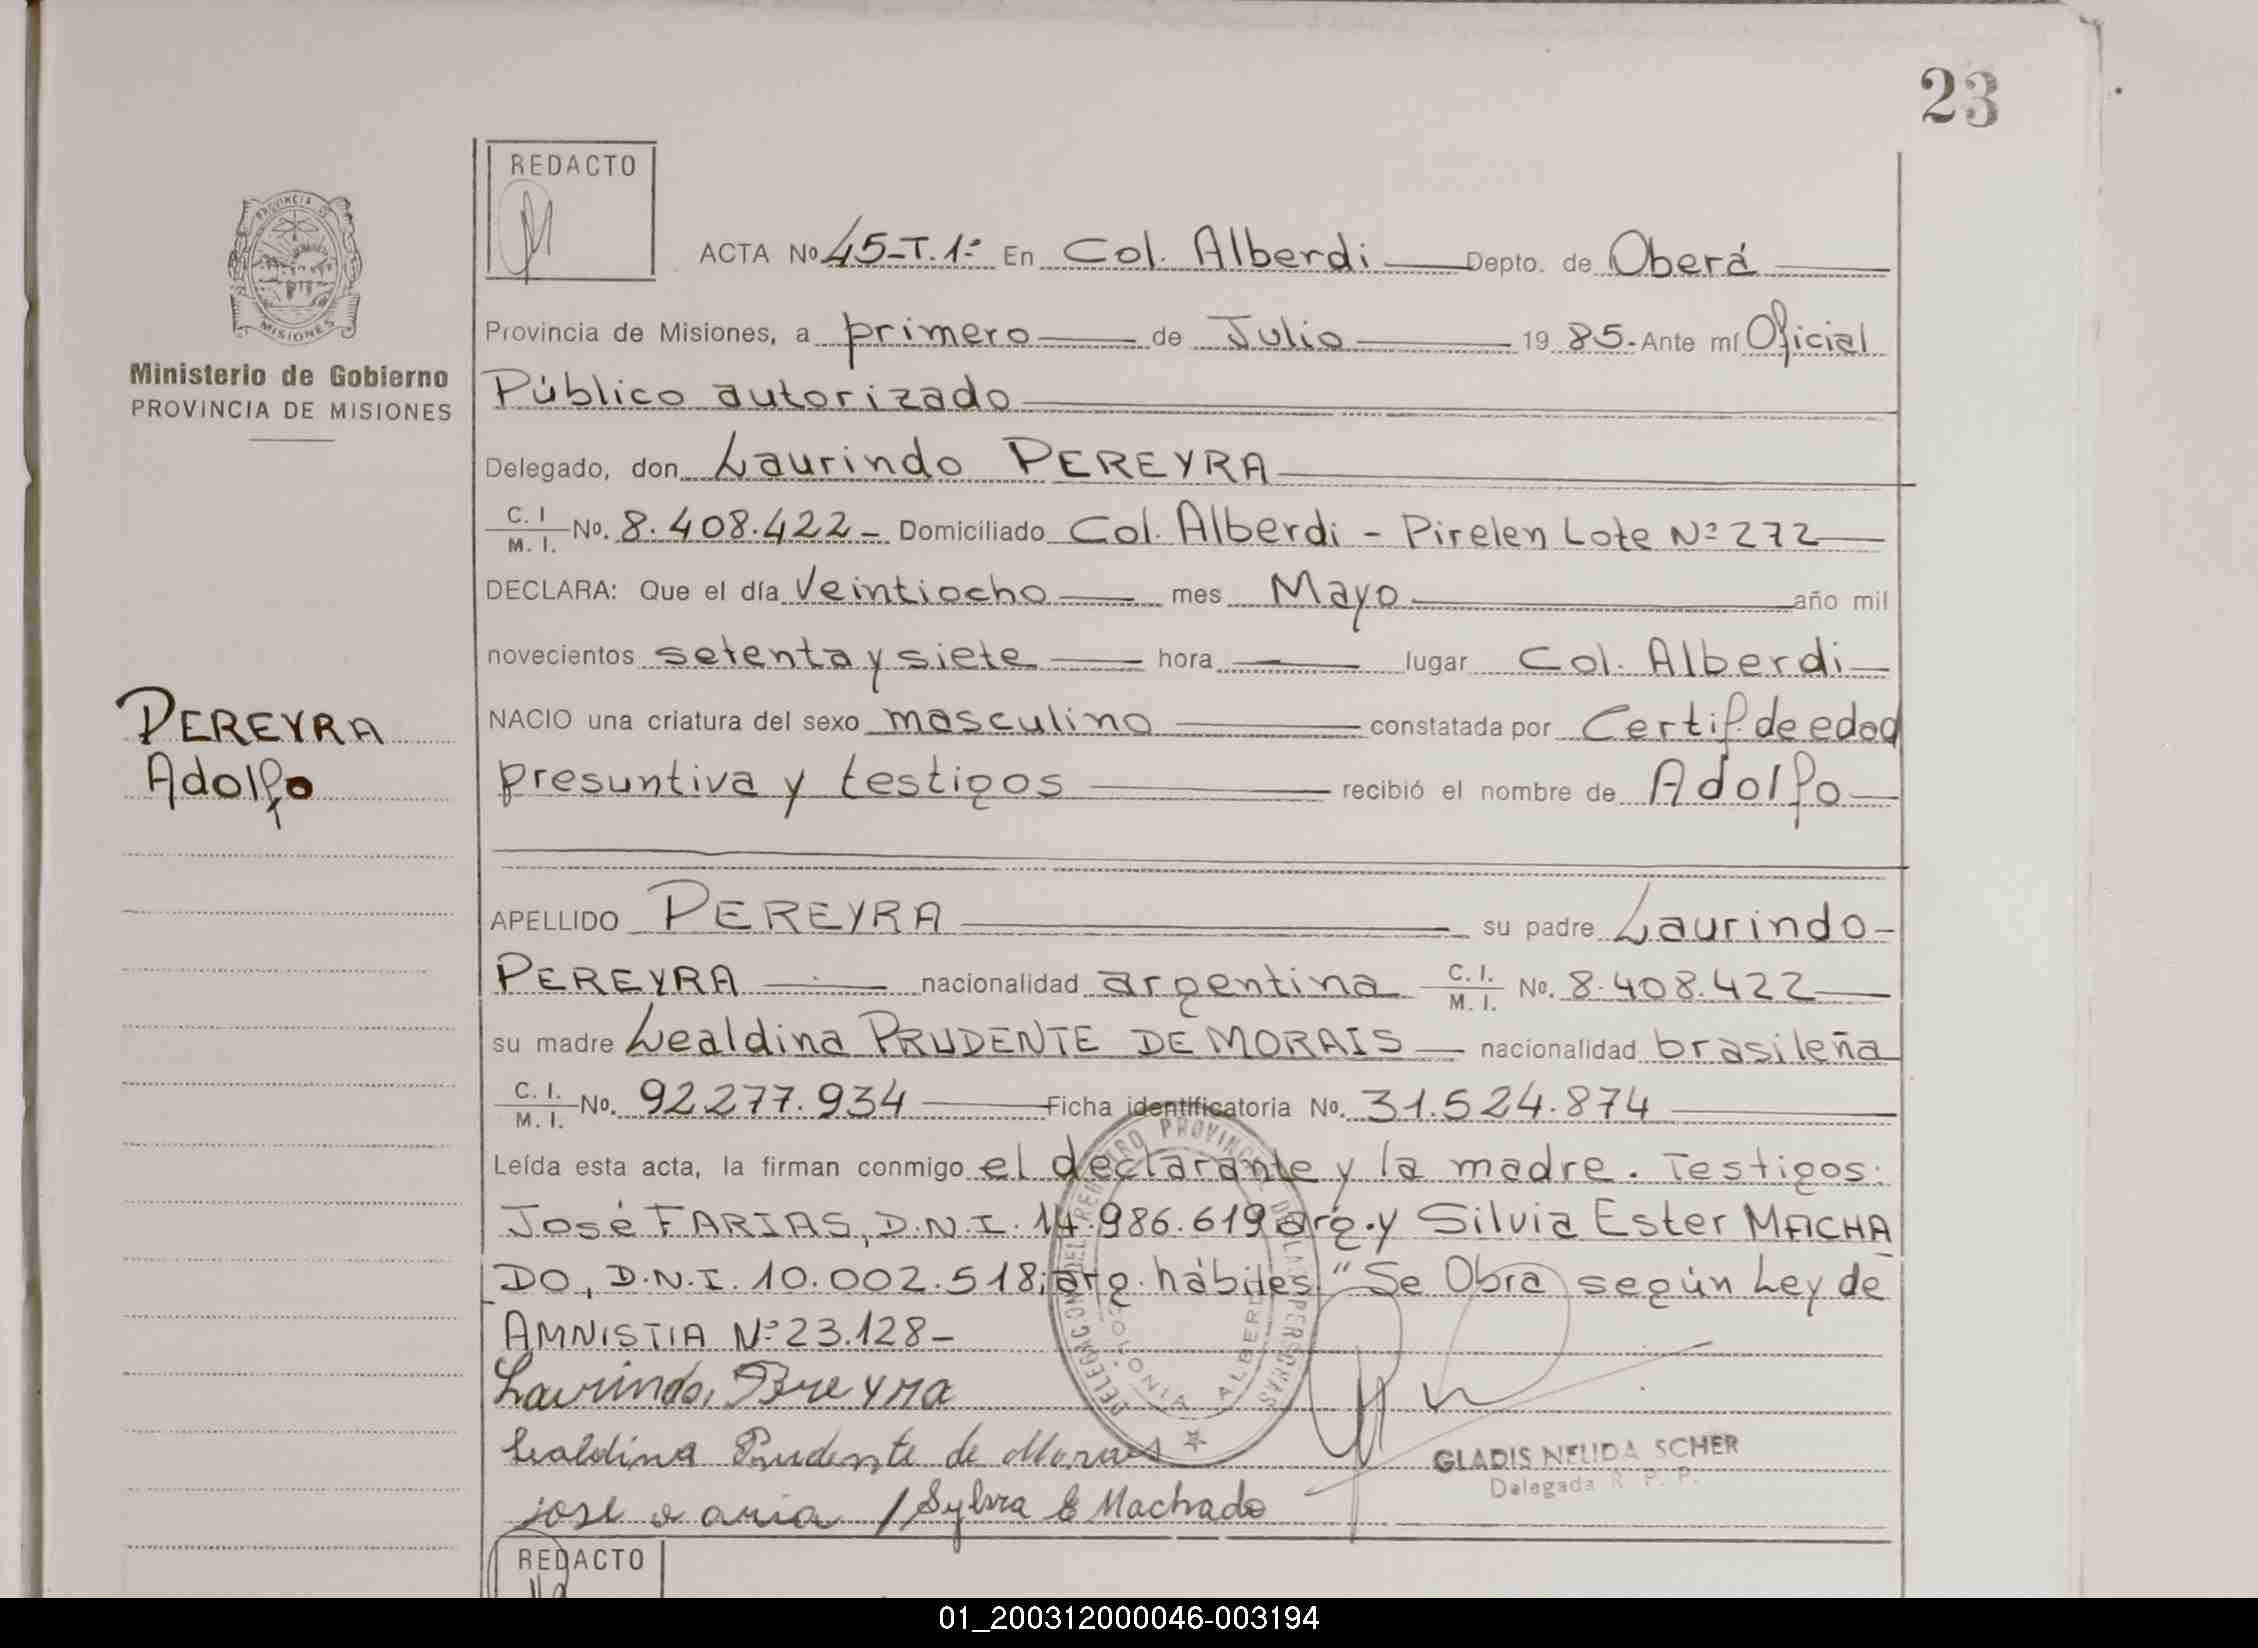 23
REDACTO
ACTA Nº 45-T.1º En Col. Alberdi Depto. de Oberá
PROVINCIA DE
MISIONES
Provincia de Misiones, a primero de Julio 19 85. Ante mí Oficial
Ministerio de Gobierno
PROVINCIA DE MISIONES
Público autorizado
Delegado, don Laurindo PEREYRA
C. I. M. I. No. 8.408.422 - Domiciliado Col. Alberdi - Pirelen Lote Nº 272
DECLARA: Que el día Veintiocho mes Mayo año mil
novecientos setenta y siete hora lugar Col. Alberdi
PEREYRA
Adolfo
NACIO una criatura del sexo masculino constatada por Certif. de edad
presuntiva y testigos recibió el nombre de Adolfo
APELLIDO PEREYRA su padre Laurindo
PEREYRA nacionalidad argentina C. I. M. I. No. 8.408.422
su madre Lealdina PRUDENTE DE MORAIS nacionalidad brasileña
C. I. M. I. No. 92.277.934 Ficha identificatoria No. 31.524.874
Leída esta acta, la firman conmigo el declarante y la madre. Testigos:
José FARIAS, D.N.I. 14.986.619 arg. y Silvia Ester MACHA
DO, D.N.I. 10.002.518; arg. hábiles. "Se Obra según Ley de
AMNISTIA Nº 23.128-
Laurindo Pereyra
Lealdina Prudente de Morais
jose / Sylvia E Machado
DELEGACION DEL REGISTRO PROVINCIAL DE LAS PERSONAS
COLONIA ALBERDI
GLADIS NELIDA SCHER
Delegada R. P. P.
REDACTO
01_200312000046-003194